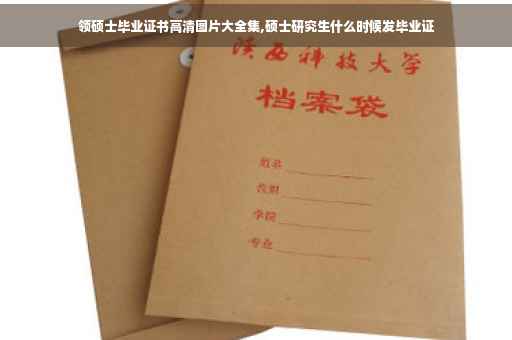 领硕士毕业证书高清图片大全集,硕士研究生什么时候发毕业证
陕西科技大学
档案袋
学院
专业